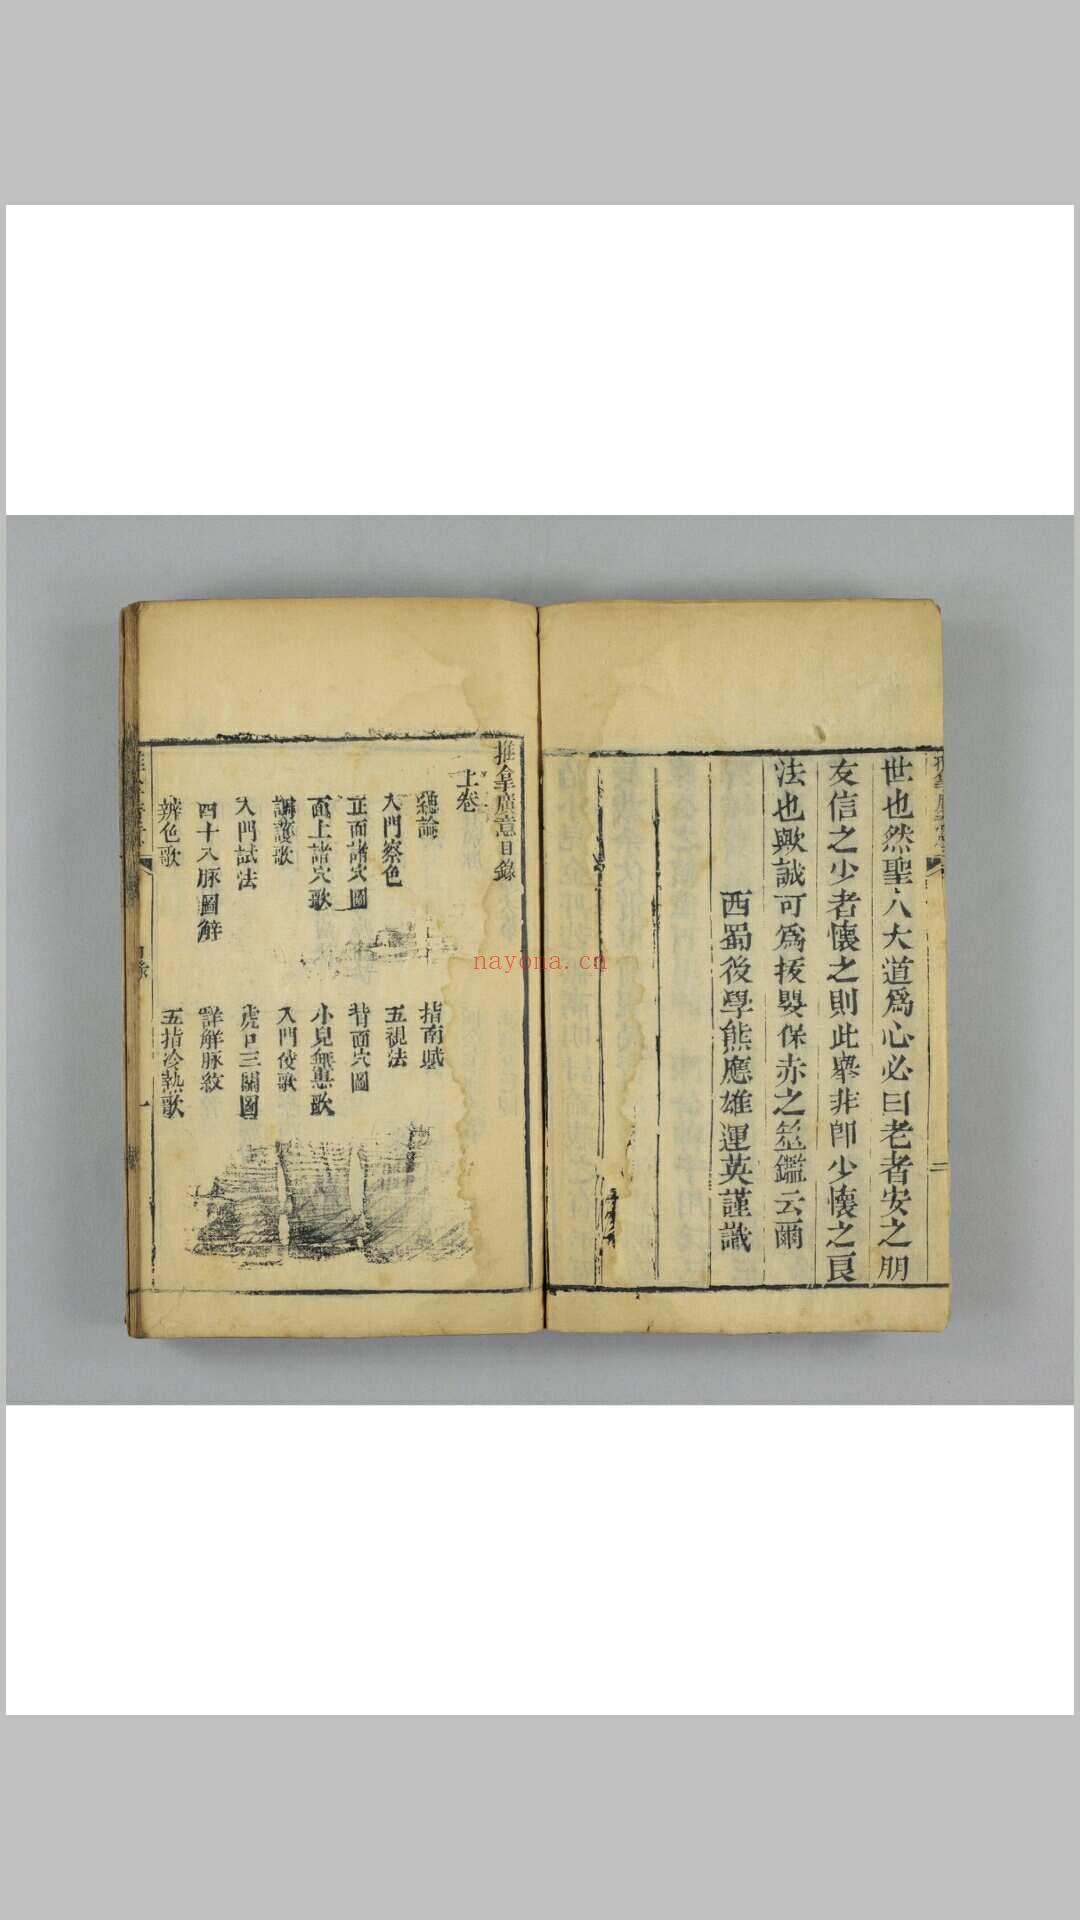 世也然聖人大道爲心必曰老者安之朋
友信之少者懷之則此舉非卽少懷之良
法也歟誠可爲援嬰保赤之筮鑑云爾
西蜀後學熊應雄運英謹識
推拿廣意目錄
上卷
總論
指南賦
入門察色
五視法
正面諸穴圖
背面穴圖
面上諸穴歌
小兒無患歌
調護歌
入門候歌
入門試法
虎口三關圖
四十八脈圖解
詳解脈紋
辨色歌
五指冷熱歌
nayona.cn